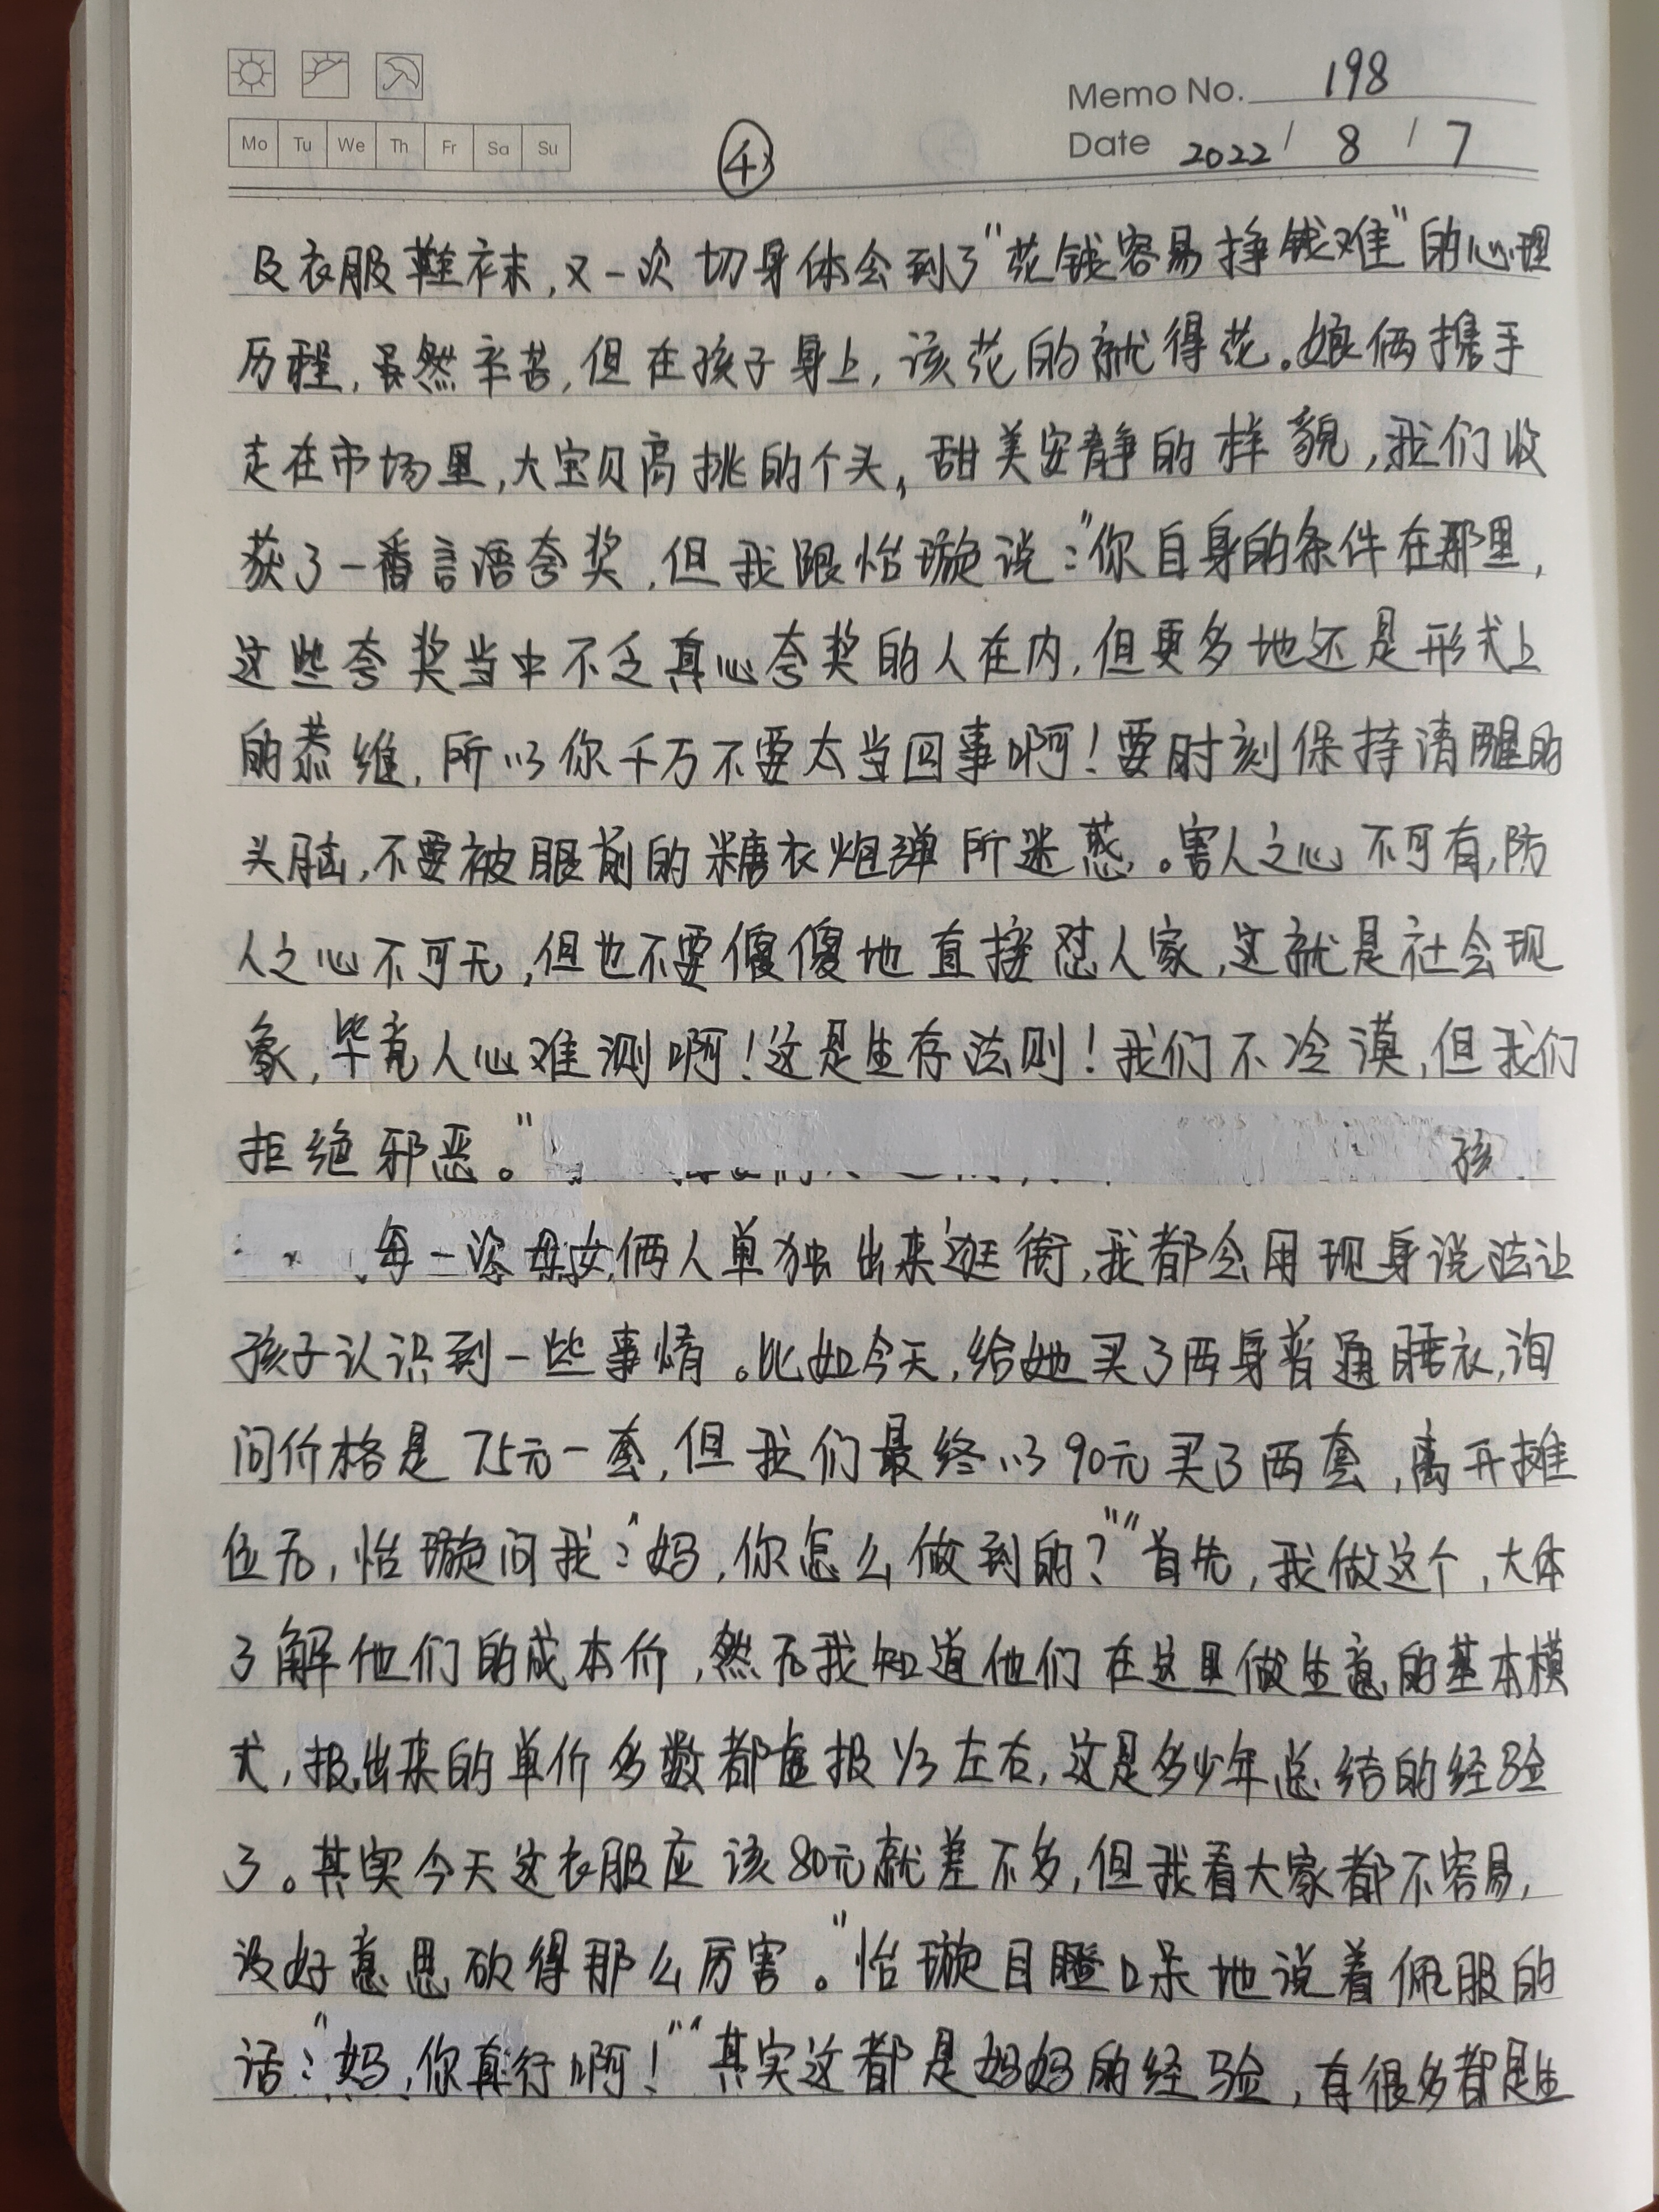 Memo No. 198
Mo Tu We Th Fr Sa Su
④
Date 2022 / 8 / 7
及衣服鞋袜,又一次切身体会到了"花钱容易挣钱难"的心理
历程,虽然辛苦,但在孩子身上,该花的就得花。娘俩携手
走在市场里,大宝贝高挑的个头,甜美安静的样貌,我们收
获了一番言语夸奖,但我跟怡璇说:"你自身的条件在那里,
这些夸奖当中不乏真心夸奖的人在内,但更多地还是形式上
的恭维,所以你千万不要太当回事啊!要时刻保持清醒的
头脑,不要被眼前的糖衣炮弹所迷惑。害人之心不可有,防
人之心不可无,但也不要傻傻地直接怼人家,这就是社会现
象,毕竟人心难测啊!这是生存法则!我们不冷漠,但我们
拒绝邪恶。" 孩
每一次母女俩人单独出来逛街,我都会用现身说法让
孩子认识到一些事情。比如今天,给她买了两身普通睡衣,询
问价格是75元一套,但我们最终以90元买了两套,离开摊
位后,怡璇问我:"妈,你怎么做到的?""首先,我做这个,大体
了解他们的成本价,然后我知道他们在这里做生意的基本模
式,报出来的单价多数都虚报1/3左右,这是多少年总结的经验
了。其实今天这衣服应该80元就差不多,但我看大家都不容易,
没好意思砍得那么厉害。"怡璇目瞪口呆地说着佩服的
话:"妈,你真行啊!""其实这都是妈妈的经验,有很多都是生